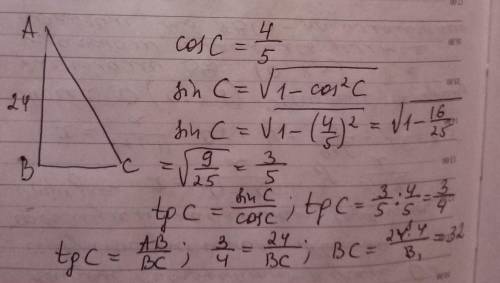 A
24
B
C
cos C = 4/5
sin C = √(1 - cos²C)
sin C = √(1 - (4/5)²) = √(1 - 16/25)
= √(9/25) = 3/5
tg C = sin C/cos C ; tg C = 3/5 : 4/5 = 3/4
tg C = AB/BC ; 3/4 = 24/BC ; BC = 24·4/3 = 32